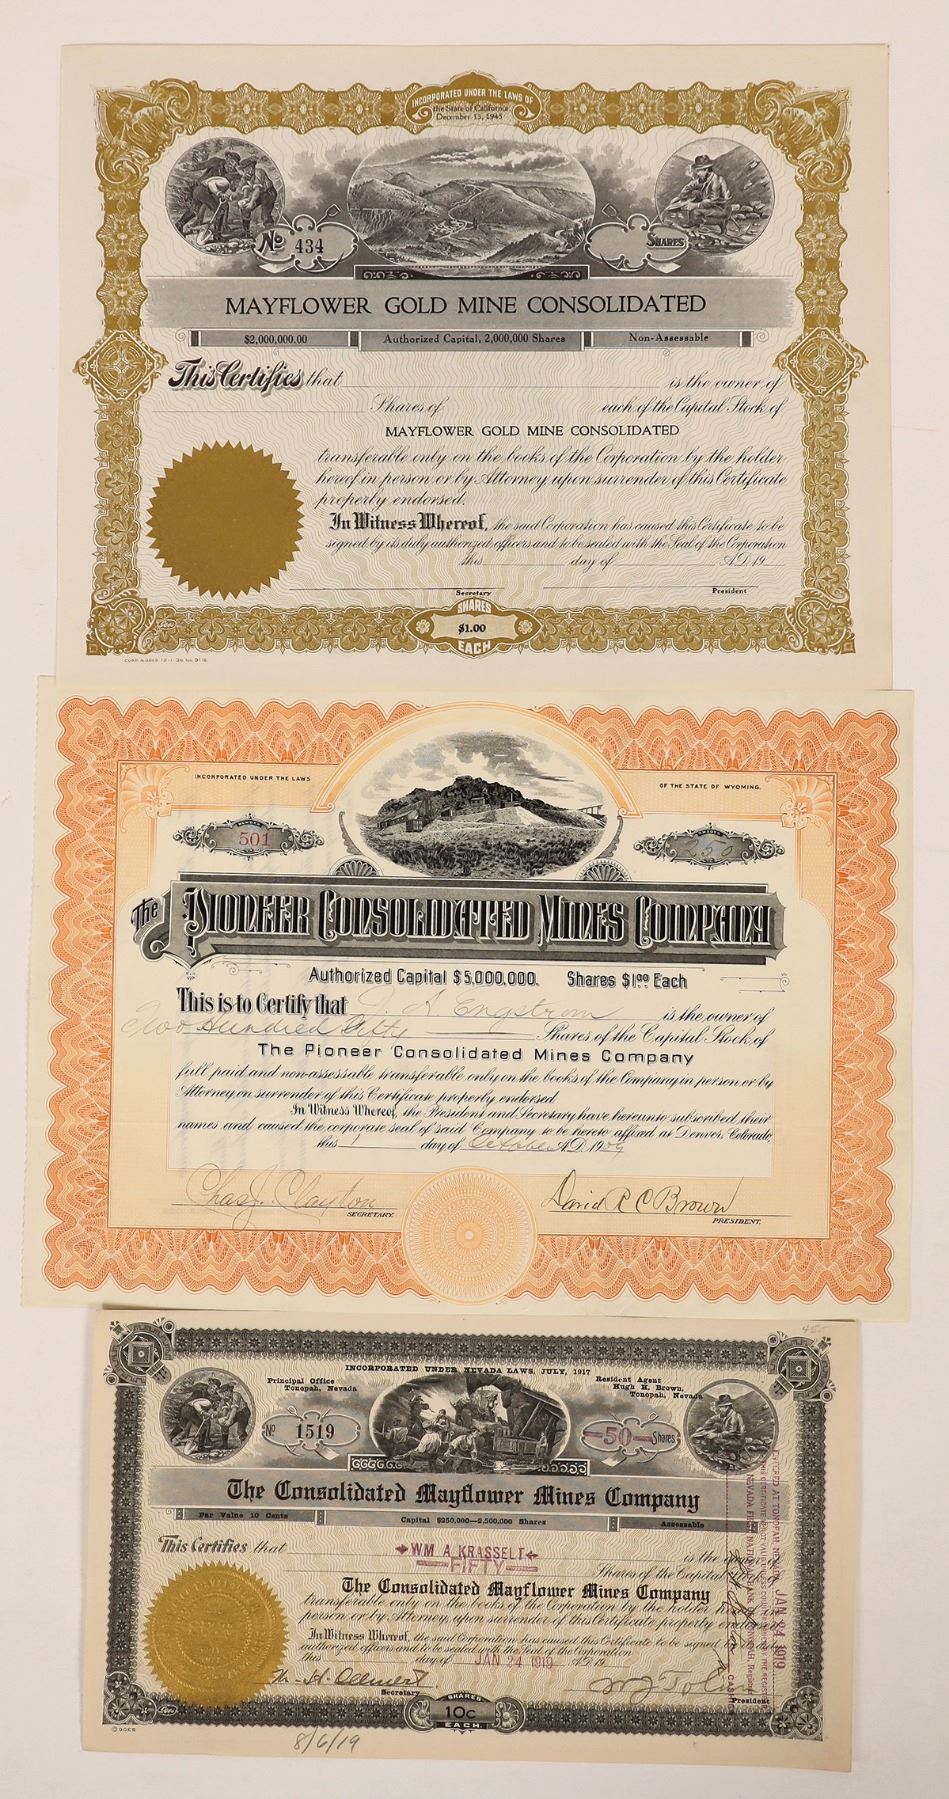 INCORPORATED UNDER THE LAWS OF
the State of California
December 13, 1945
No 434
SHARES
MAYFLOWER GOLD MINE CONSOLIDATED
$2,000,000.00 Authorized Capital, 2,000,000 Shares Non-Assessable
This Certifies that is the owner of
Shares of each of the Capital Stock of
MAYFLOWER GOLD MINE CONSOLIDATED
transferable only on the books of the Corporation by the holder
hereof in person or by Attorney upon surrender of this Certificate
properly endorsed.
In Witness Whereof, the said Corporation has caused this Certificate to be
signed by its duly authorized officers and to be sealed with the Seal of the Corporation
this day of A.D. 19
Secretary President
SHARES
$1.00
EACH
INCORPORATED UNDER THE LAWS OF THE STATE OF WYOMING.
NUMBER
501
SHARES
250
The Pioneer Consolidated Mines Company
Authorized Capital $5,000,000. Shares $1.00 Each
This is to Certify that J. L. Engstrom is the owner of
Two Hundred Fifty Shares of the Capital Stock of
The Pioneer Consolidated Mines Company
full paid and non-assessable transferable only on the books of the Company in person or by
Attorney on surrender of this Certificate properly endorsed
In Witness Whereof, the President and Secretary have hereunto subscribed their
names and caused the corporate seal of said Company to be hereto affixed at Denver, Colorado
this 1 day of October A.D. 1909
Chas. J. Clayton David R C Brown
SECRETARY. PRESIDENT.
INCORPORATED UNDER NEVADA LAWS, JULY, 1917
Principal Office
Tonopah, Nevada
Resident Agent
Hugh H. Brown,
Tonopah, Nevada
No 1519
50 Shares
The Consolidated Mayflower Mines Company
Par Value 10 Cents Capital $250,000—2,500,000 Shares Assessable
This Certifies that WM A KRASSELT is the owner of
FIFTY Shares of the Capital Stock of
The Consolidated Mayflower Mines Company
transferable only on the books of the Corporation by the holder
person or by Attorney, upon surrender of this Certificate properly endorsed
In Witness Whereof, the said Corporation has caused this Certificate to be signed
authorized officers and to be sealed with the Seal of the Corporation
this day of JAN 24 1919 A.D. 19
Secretary President
SHARES
10c
EACH.
ENTERED AT TONOPAH, NEVADA, JAN 24 1919
8/6/19